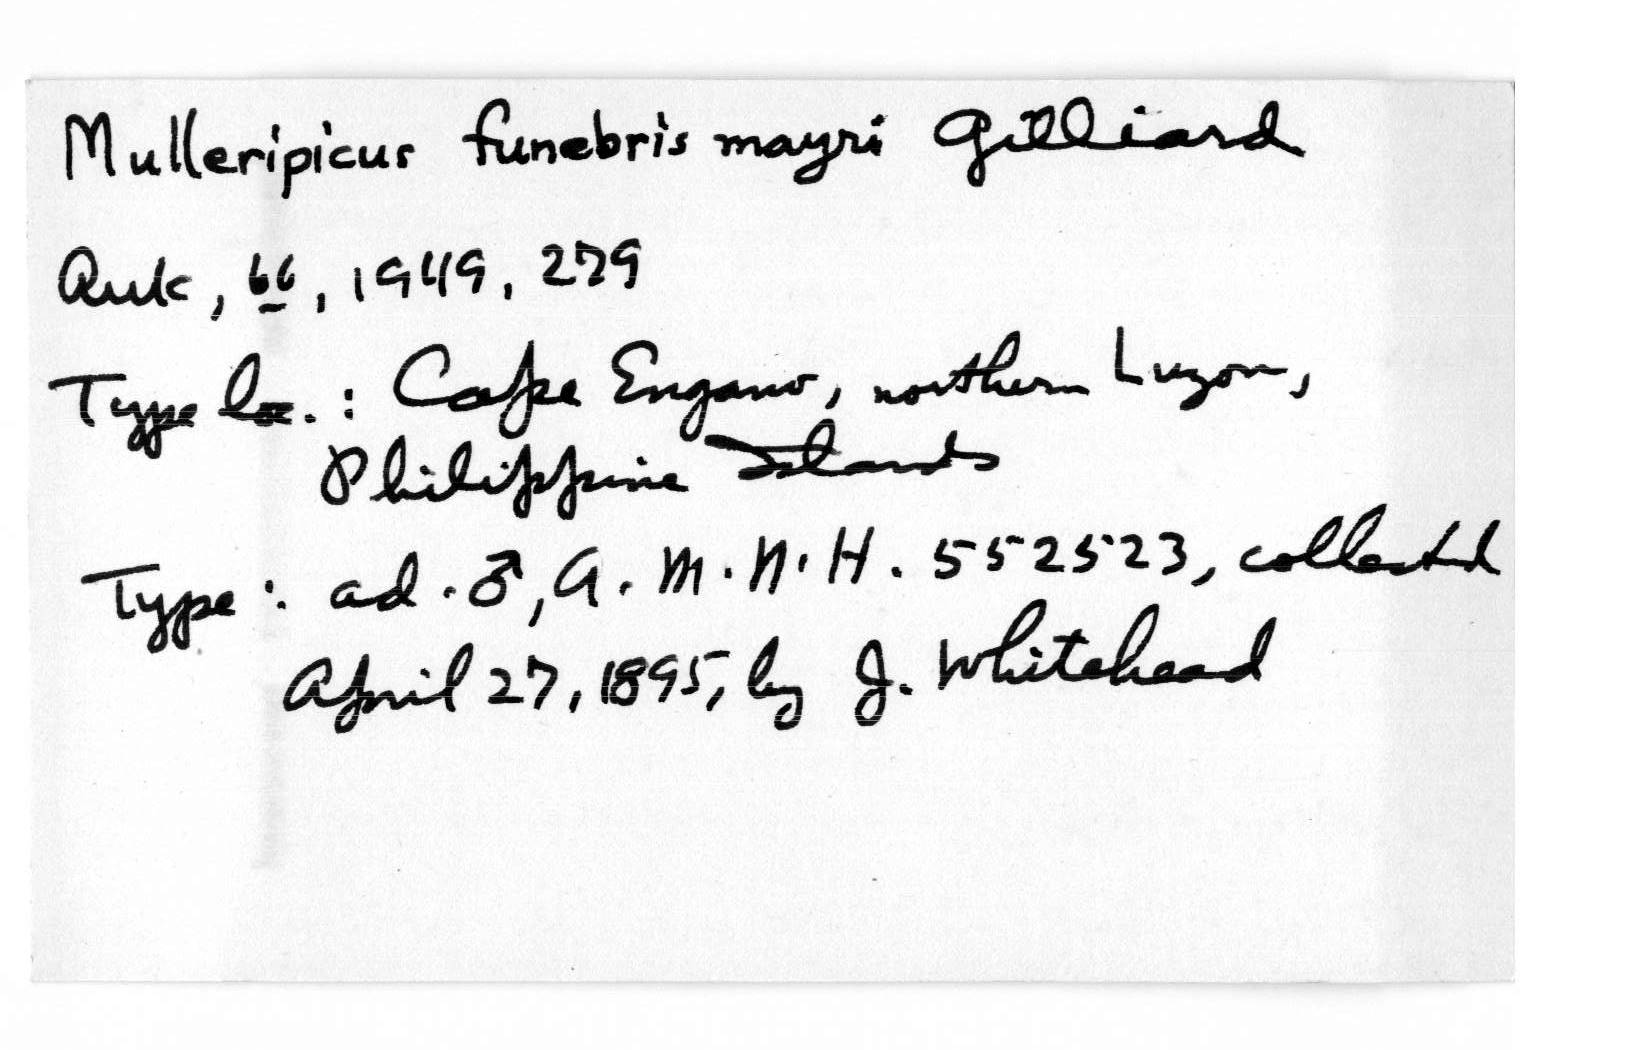 Mulleripicus funebris mayri Gilliard
Auk, 66, 1949, 279
Type loc. : Cape Engano, northern Luzon,
Philippine Islands
Type : ad. ♂, A. M. N. H. 552523, collected
April 27, 1895, by J. Whitehead